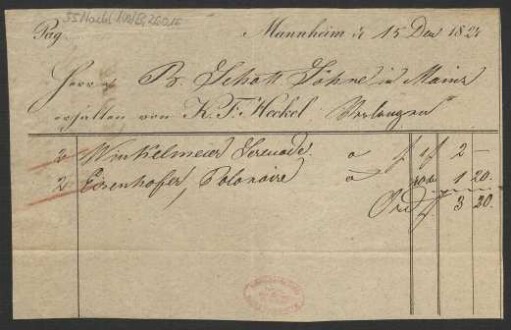 Pag.
Mannheim d 15 Dec 182
Herren B. Schott Söhne in Mainz
erhalten von K. F. Heckel Verlangen
2 Winkelmeier Serenade. a f 1 f 2 —
2 Eisenhofer, Polonaise a 1 20.
Ord f 3 20.